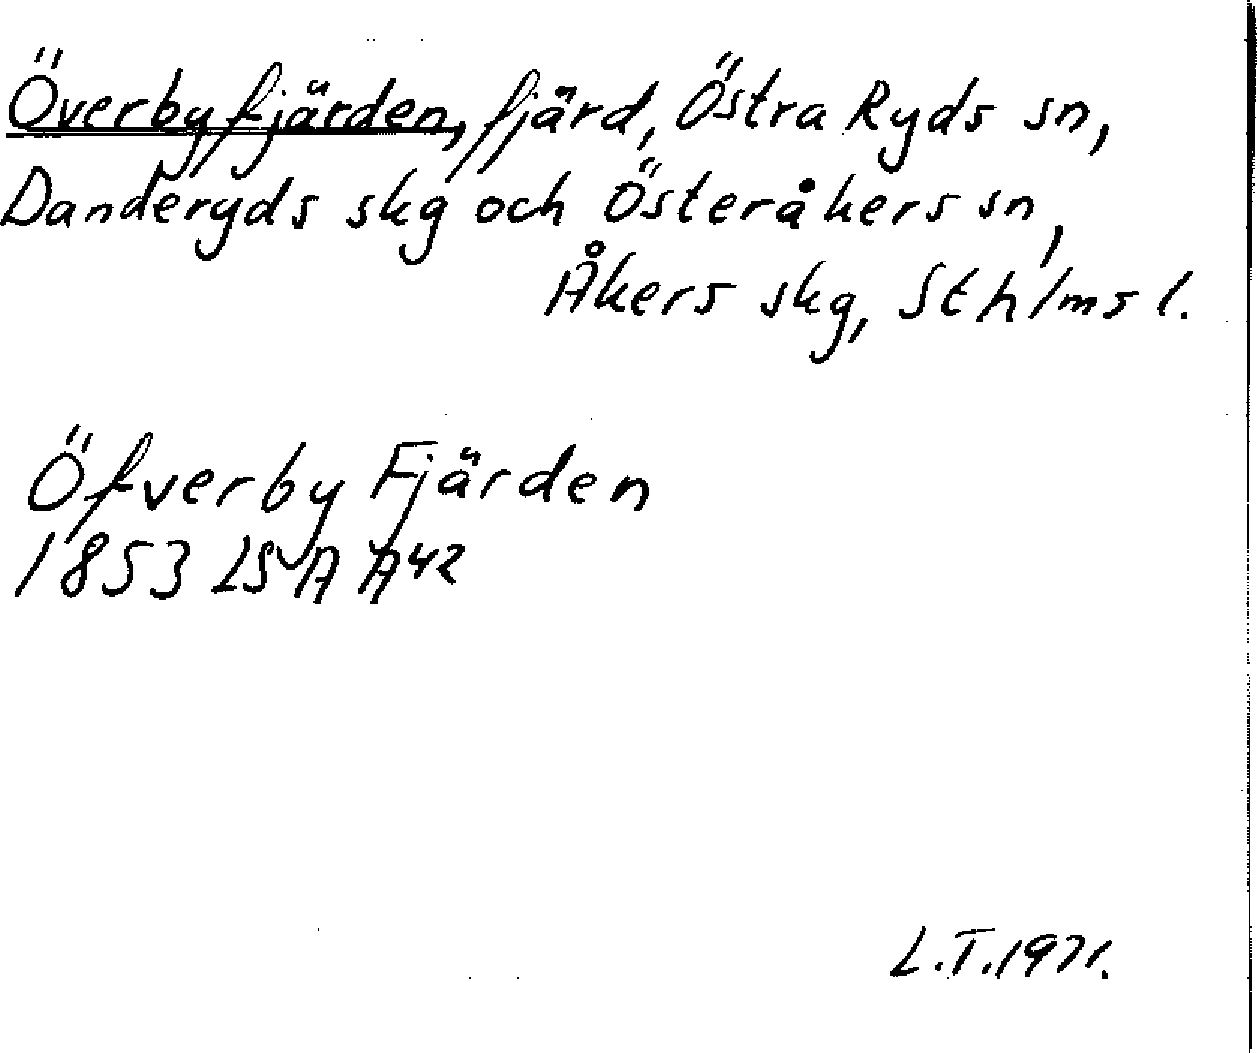 Överbyfjärden, fjärd, Östra Ryds sn,
Danderyds skg och Österåkers sn,
Åkers skg, Sthlms l.
Öfverby Fjärden
1853 LSA A42
L.T.1971.